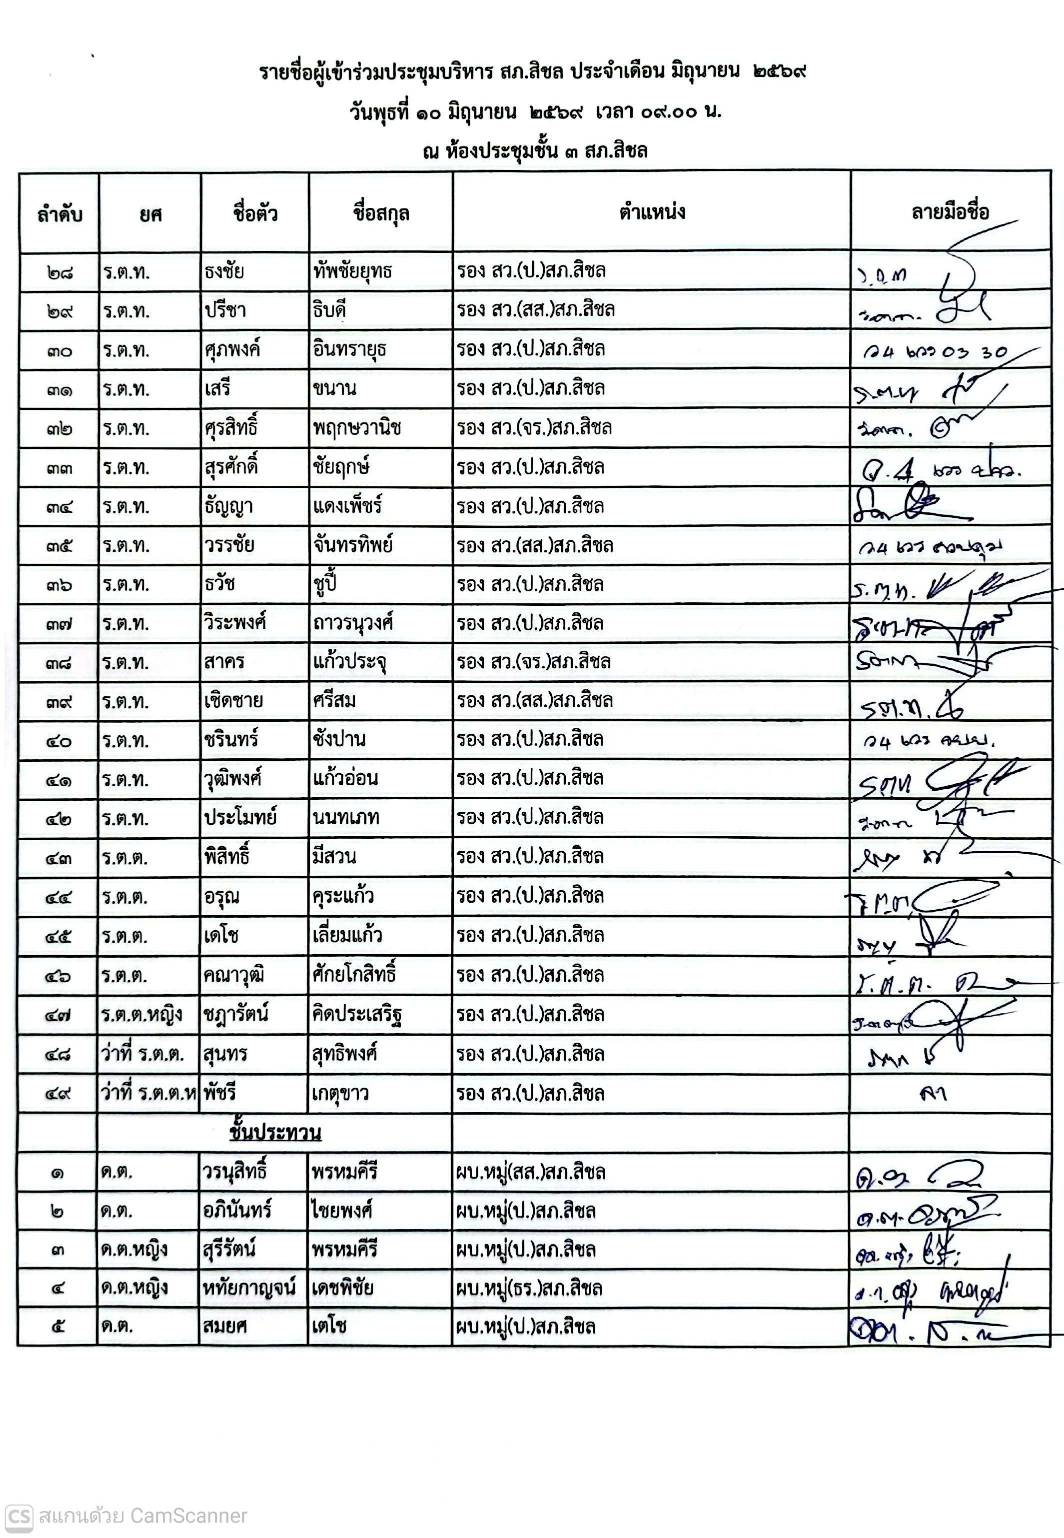 รายชื่อผู้เข้าร่วมประชุมบริหาร สภ.สิชล ประจำเดือน มิถุนายน ๒๕๖๙
วันพุธที่ ๑๐ มิถุนายน ๒๕๖๙ เวลา ๐๙.๐๐ น.
ณ ห้องประชุมชั้น ๓ สภ.สิชล
ลำดับ ยศ ชื่อตัว ชื่อสกุล ตำแหน่ง ลายมือชื่อ
๒๘ ร.ต.ท. ธงชัย ทัพชัยยุทธ รอง สว.(ป.)สภ.สิชล
๒๙ ร.ต.ท. ปรีชา ธิบดี รอง สว.(สส.)สภ.สิชล
๓๐ ร.ต.ท. ศุภพงศ์ อินทรายุธ รอง สว.(ป.)สภ.สิชล
๓๑ ร.ต.ท. เสรี ขนาน รอง สว.(ป.)สภ.สิชล ร.ต.ท
๓๒ ร.ต.ท. ศุรสิทธิ์ พฤกษวานิช รอง สว.(จร.)สภ.สิชล
๓๓ ร.ต.ท. สุรศักดิ์ ชัยฤกษ์ รอง สว.(ป.)สภ.สิชล
๓๔ ร.ต.ท. ธัญญา แดงเพ็ชร์ รอง สว.(ป.)สภ.สิชล
๓๕ ร.ต.ท. วรรชัย จันทรทิพย์ รอง สว.(สส.)สภ.สิชล
๓๖ ร.ต.ท. ธวัช ชูปี้ รอง สว.(ป.)สภ.สิชล ร.ต.ท.
๓๗ ร.ต.ท. วิระพงศ์ ถาวรนุวงศ์ รอง สว.(ป.)สภ.สิชล
๓๘ ร.ต.ท. สาคร แก้วประจุ รอง สว.(จร.)สภ.สิชล
๓๙ ร.ต.ท. เชิดชาย ศรีสม รอง สว.(สส.)สภ.สิชล รต.ท.
๔๐ ร.ต.ท. ชรินทร์ ชังปาน รอง สว.(ป.)สภ.สิชล
๔๑ ร.ต.ท. วุฒิพงศ์ แก้วอ่อน รอง สว.(ป.)สภ.สิชล รตท
๔๒ ร.ต.ท. ประโมทย์ นนทเภท รอง สว.(ป.)สภ.สิชล
๔๓ ร.ต.ต. พิสิทธิ์ มีสวน รอง สว.(ป.)สภ.สิชล
๔๔ ร.ต.ต. อรุณ คุระแก้ว รอง สว.(ป.)สภ.สิชล
๔๕ ร.ต.ต. เดโช เลี่ยมแก้ว รอง สว.(ป.)สภ.สิชล
๔๖ ร.ต.ต. คณาวุฒิ ศักยโกสิทธิ์ รอง สว.(ป.)สภ.สิชล
๔๗ ร.ต.ต.หญิง ชฎารัตน์ คิดประเสริฐ รอง สว.(ป.)สภ.สิชล
๔๘ ว่าที่ ร.ต.ต. สุนทร สุทธิพงศ์ รอง สว.(ป.)สภ.สิชล
๔๙ ว่าที่ ร.ต.ต.ห พัชรี เกตุขาว รอง สว.(ป.)สภ.สิชล ลา
ชั้นประทวน
๑ ด.ต. วรนุสิทธิ์ พรหมคีรี ผบ.หมู่(สส.)สภ.สิชล
๒ ด.ต. อภินันทร์ ไชยพงศ์ ผบ.หมู่(ป.)สภ.สิชล
๓ ด.ต.หญิง สุรีรัตน์ พรหมคีรี ผบ.หมู่(ป.)สภ.สิชล
๔ ด.ต.หญิง หทัยกาญจน์ เดชพิชัย ผบ.หมู่(ธร.)สภ.สิชล
๕ ด.ต. สมยศ เตโช ผบ.หมู่(ป.)สภ.สิชล
CS สแกนด้วย CamScanner